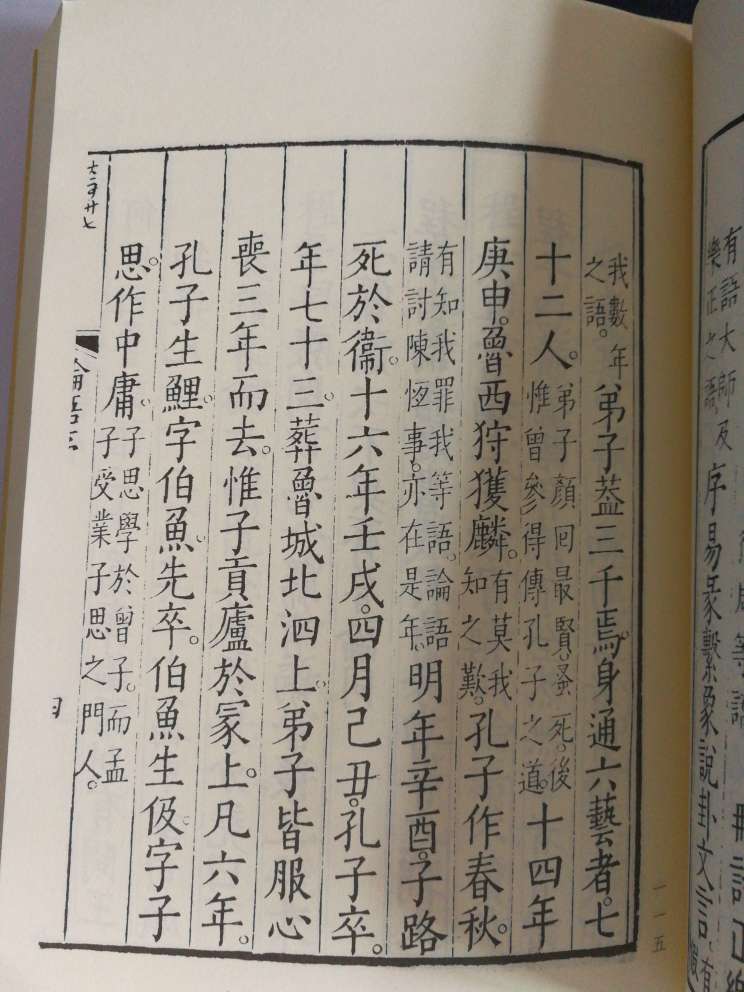 等語 刪詩正樂
有語大師及樂正之語 序易彖繫象說卦文言 有
我數年之語。弟子蓋三千焉。身通六藝者。七
十二人。弟子顏回最賢。蚤死。後惟曾參得傳孔子之道。十四年
庚申。魯西狩獲麟。有莫我知之歎。孔子作春秋。
有知我罪我等語。論語請討陳恆事。亦在是年。明年辛酉。子路
死於衞。十六年壬戌。四月己丑。孔子卒。
年七十三。葬魯城北泗上。弟子皆服心
喪三年而去。惟子貢廬於冢上。凡六年。
孔子生鯉。字伯魚。先卒。伯魚生伋。字子
思。作中庸。子思學於曾子。而孟子受業子思之門人。
論語
四
一一五